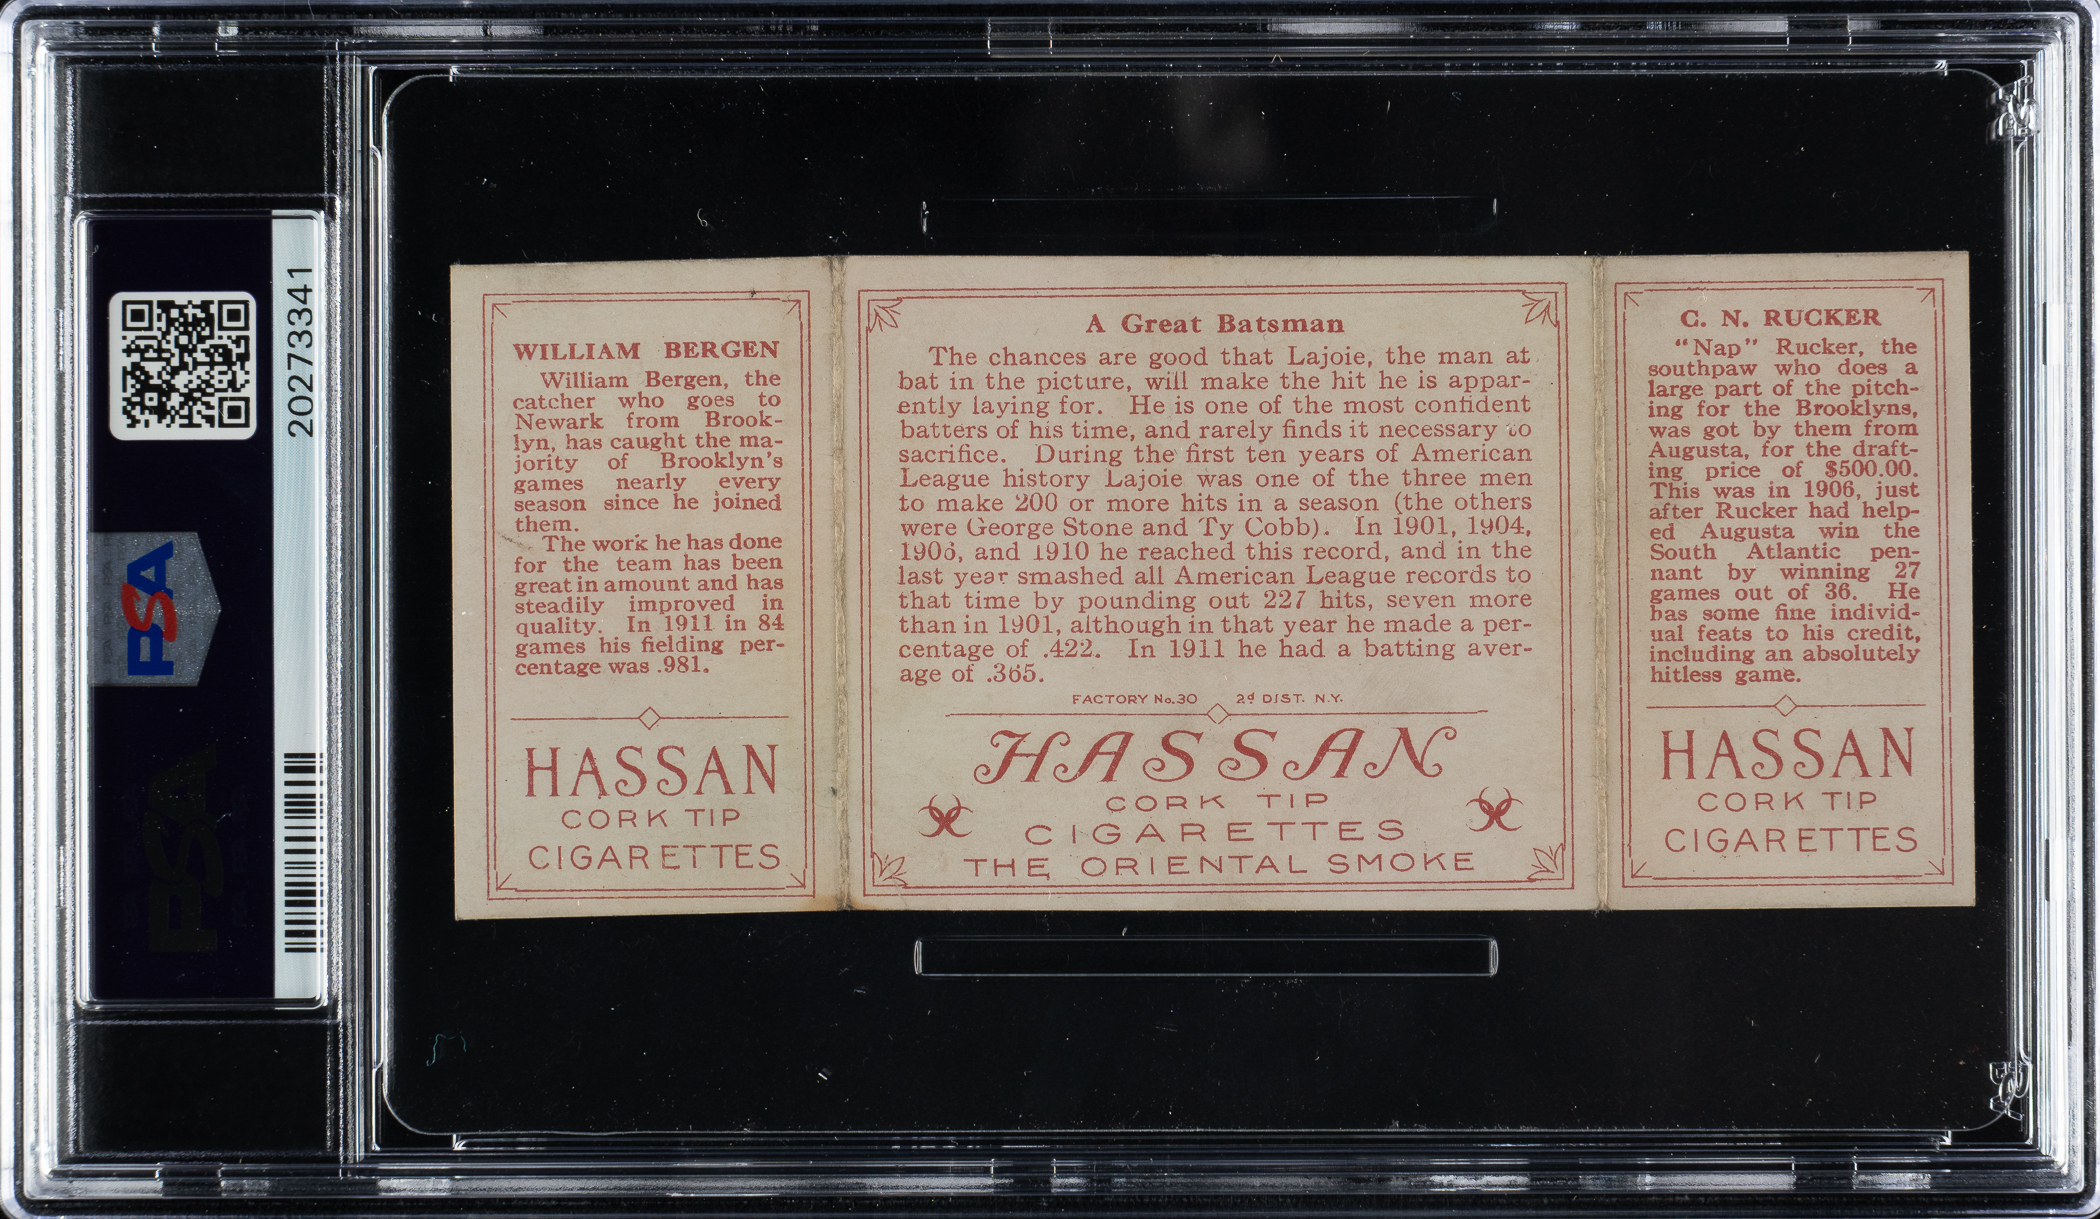 20273341
PSA
PSA
WILLIAM BERGEN
William Bergen, the
catcher who goes to
Newark from Brook-
lyn, has caught the ma-
jority of Brooklyn's
games nearly every
season since he joined
them.
The work he has done
for the team has been
great in amount and has
steadily improved in
quality. In 1911 in 84
games his fielding per-
centage was .981.
HASSAN
CORK TIP
CIGARETTES
A Great Batsman
The chances are good that Lajoie, the man at
bat in the picture, will make the hit he is appar-
ently laying for. He is one of the most confident
batters of his time, and rarely finds it necessary to
sacrifice. During the first ten years of American
League history Lajoie was one of the three men
to make 200 or more hits in a season (the others
were George Stone and Ty Cobb). In 1901, 1904,
1906, and 1910 he reached this record, and in the
last year smashed all American League records to
that time by pounding out 227 hits, seven more
than in 1901, although in that year he made a per-
centage of .422. In 1911 he had a batting aver-
age of .365.
FACTORY No. 30 2d DIST. N.Y.
HASSAN
CORK TIP
CIGARETTES
THE ORIENTAL SMOKE
C. N. RUCKER
"Nap" Rucker, the
southpaw who does a
large part of the pitch-
ing for the Brooklyns,
was got by them from
Augusta, for the draft-
ing price of $500.00.
This was in 1906, just
after Rucker had help-
ed Augusta win the
South Atlantic pen-
nant by winning 27
games out of 36. He
has some fine individ-
ual feats to his credit,
including an absolutely
hitless game.
HASSAN
CORK TIP
CIGARETTES